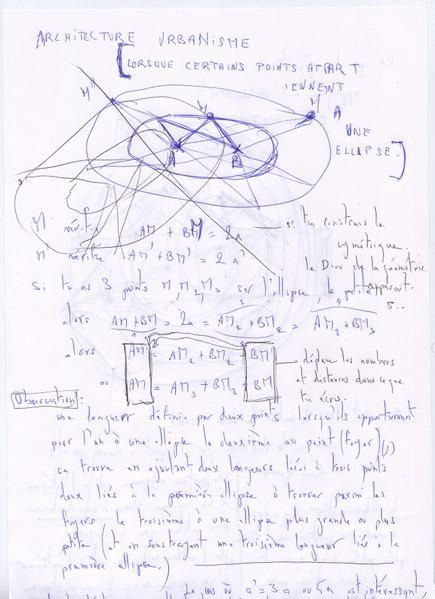 ARCHITECTURE URBANISME
[LORSQUE CERTAINS POINTS APPART
IENNENT
M" M M' A
UNE
ELLIPSE.]
A B
M vérifie AM + BM = 2a
si tu construis le
symétrique.
M' vérifie AM' + BM' = 2a'
le Dieu de la géométrie
apparait.
Si tu as 3 points M, M2, M3 sur l'ellipse, la petite
alors AM + BM = 2a = AM2 + BM2 = AM3 + BM3
alors AM = AM2 + BM2 - BM
déplace les nombres
et distances dans ce que
tu écris.
ou AM = AM3 + BM3 - BM
Observation:
une longueur définie par deux points lorsqu'ils appartiennent
pour l'un à une ellipse le deuxième au point (foyer)
se trouve en ajoutant deux longueurs liées à trois points
deux liés à la première ellipse à trouver parmi les
foyers le troisième à une ellipse plus grande ou plus
petite (et en soustrayant une troisième longueur liée à la
première ellipse.)
le cas où a' = 3a ou 5a est intéressant,